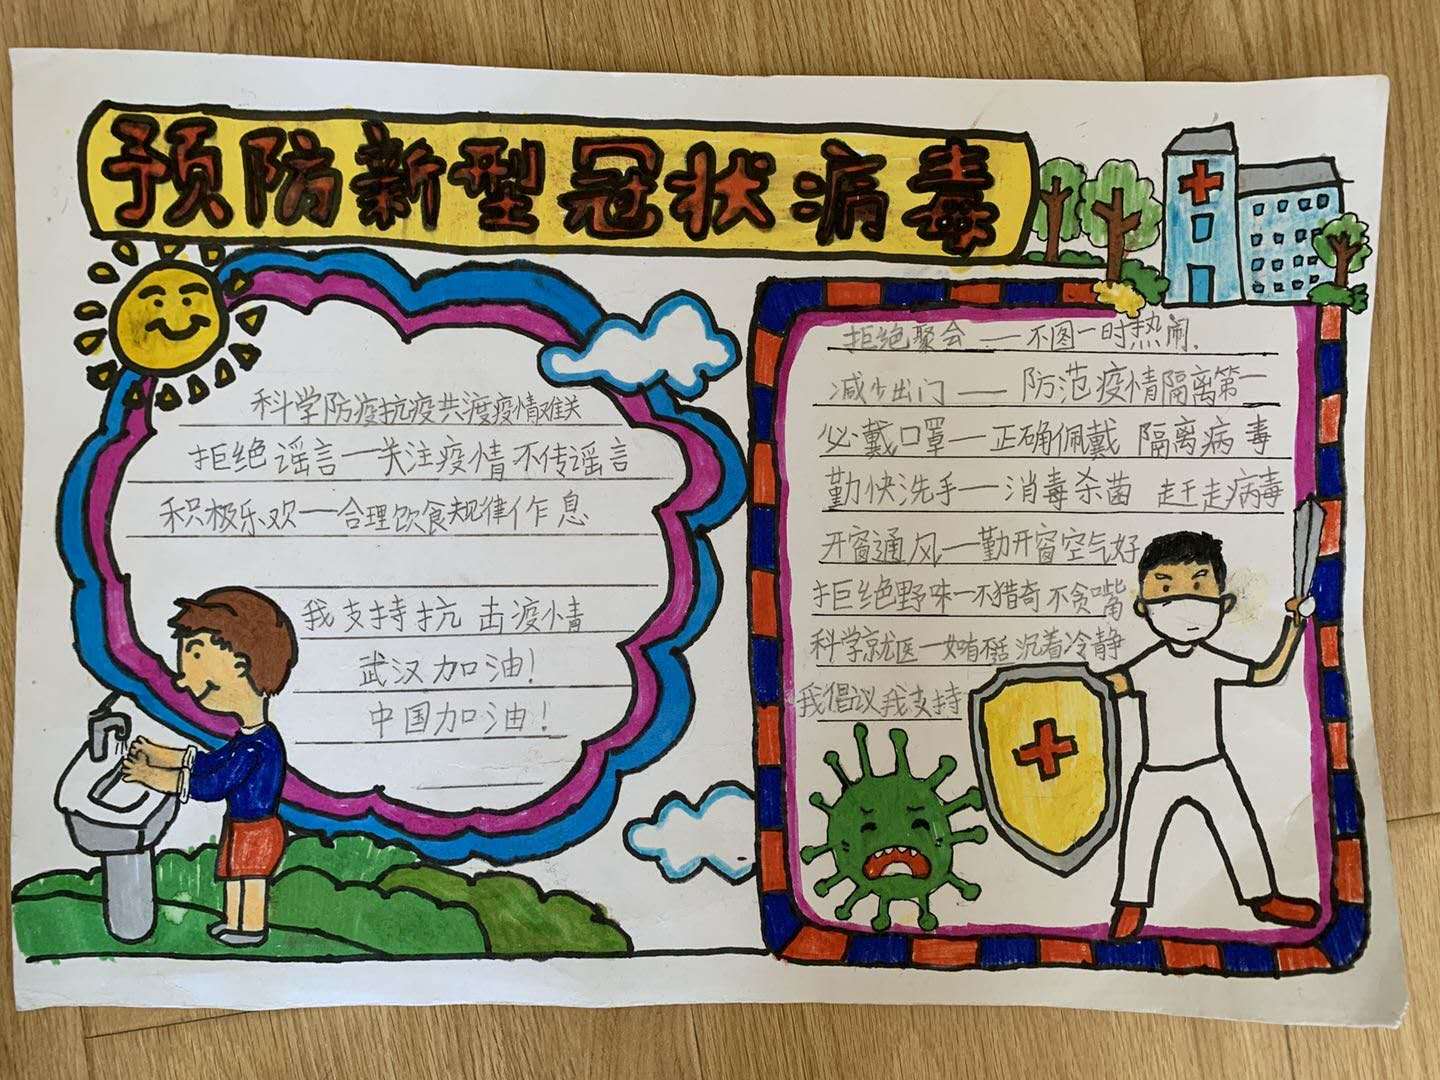 预防新型冠状病毒
科学防疫抗疫共渡疫情难关
拒绝谣言一关注疫情不传谣言
积极乐观一合理饮食规律作息
我支持抗击疫情
武汉加油!
中国加油!
拒绝聚会——不图一时热闹.
减少出门——防范疫情隔离第一
必戴口罩—正确佩戴 隔离病毒
勤快洗手—消毒杀菌 赶走病毒
开窗通风—勤开窗空气好
拒绝野味一不猎奇不贪嘴
科学就医一如有 沉着冷静
我倡议我支持